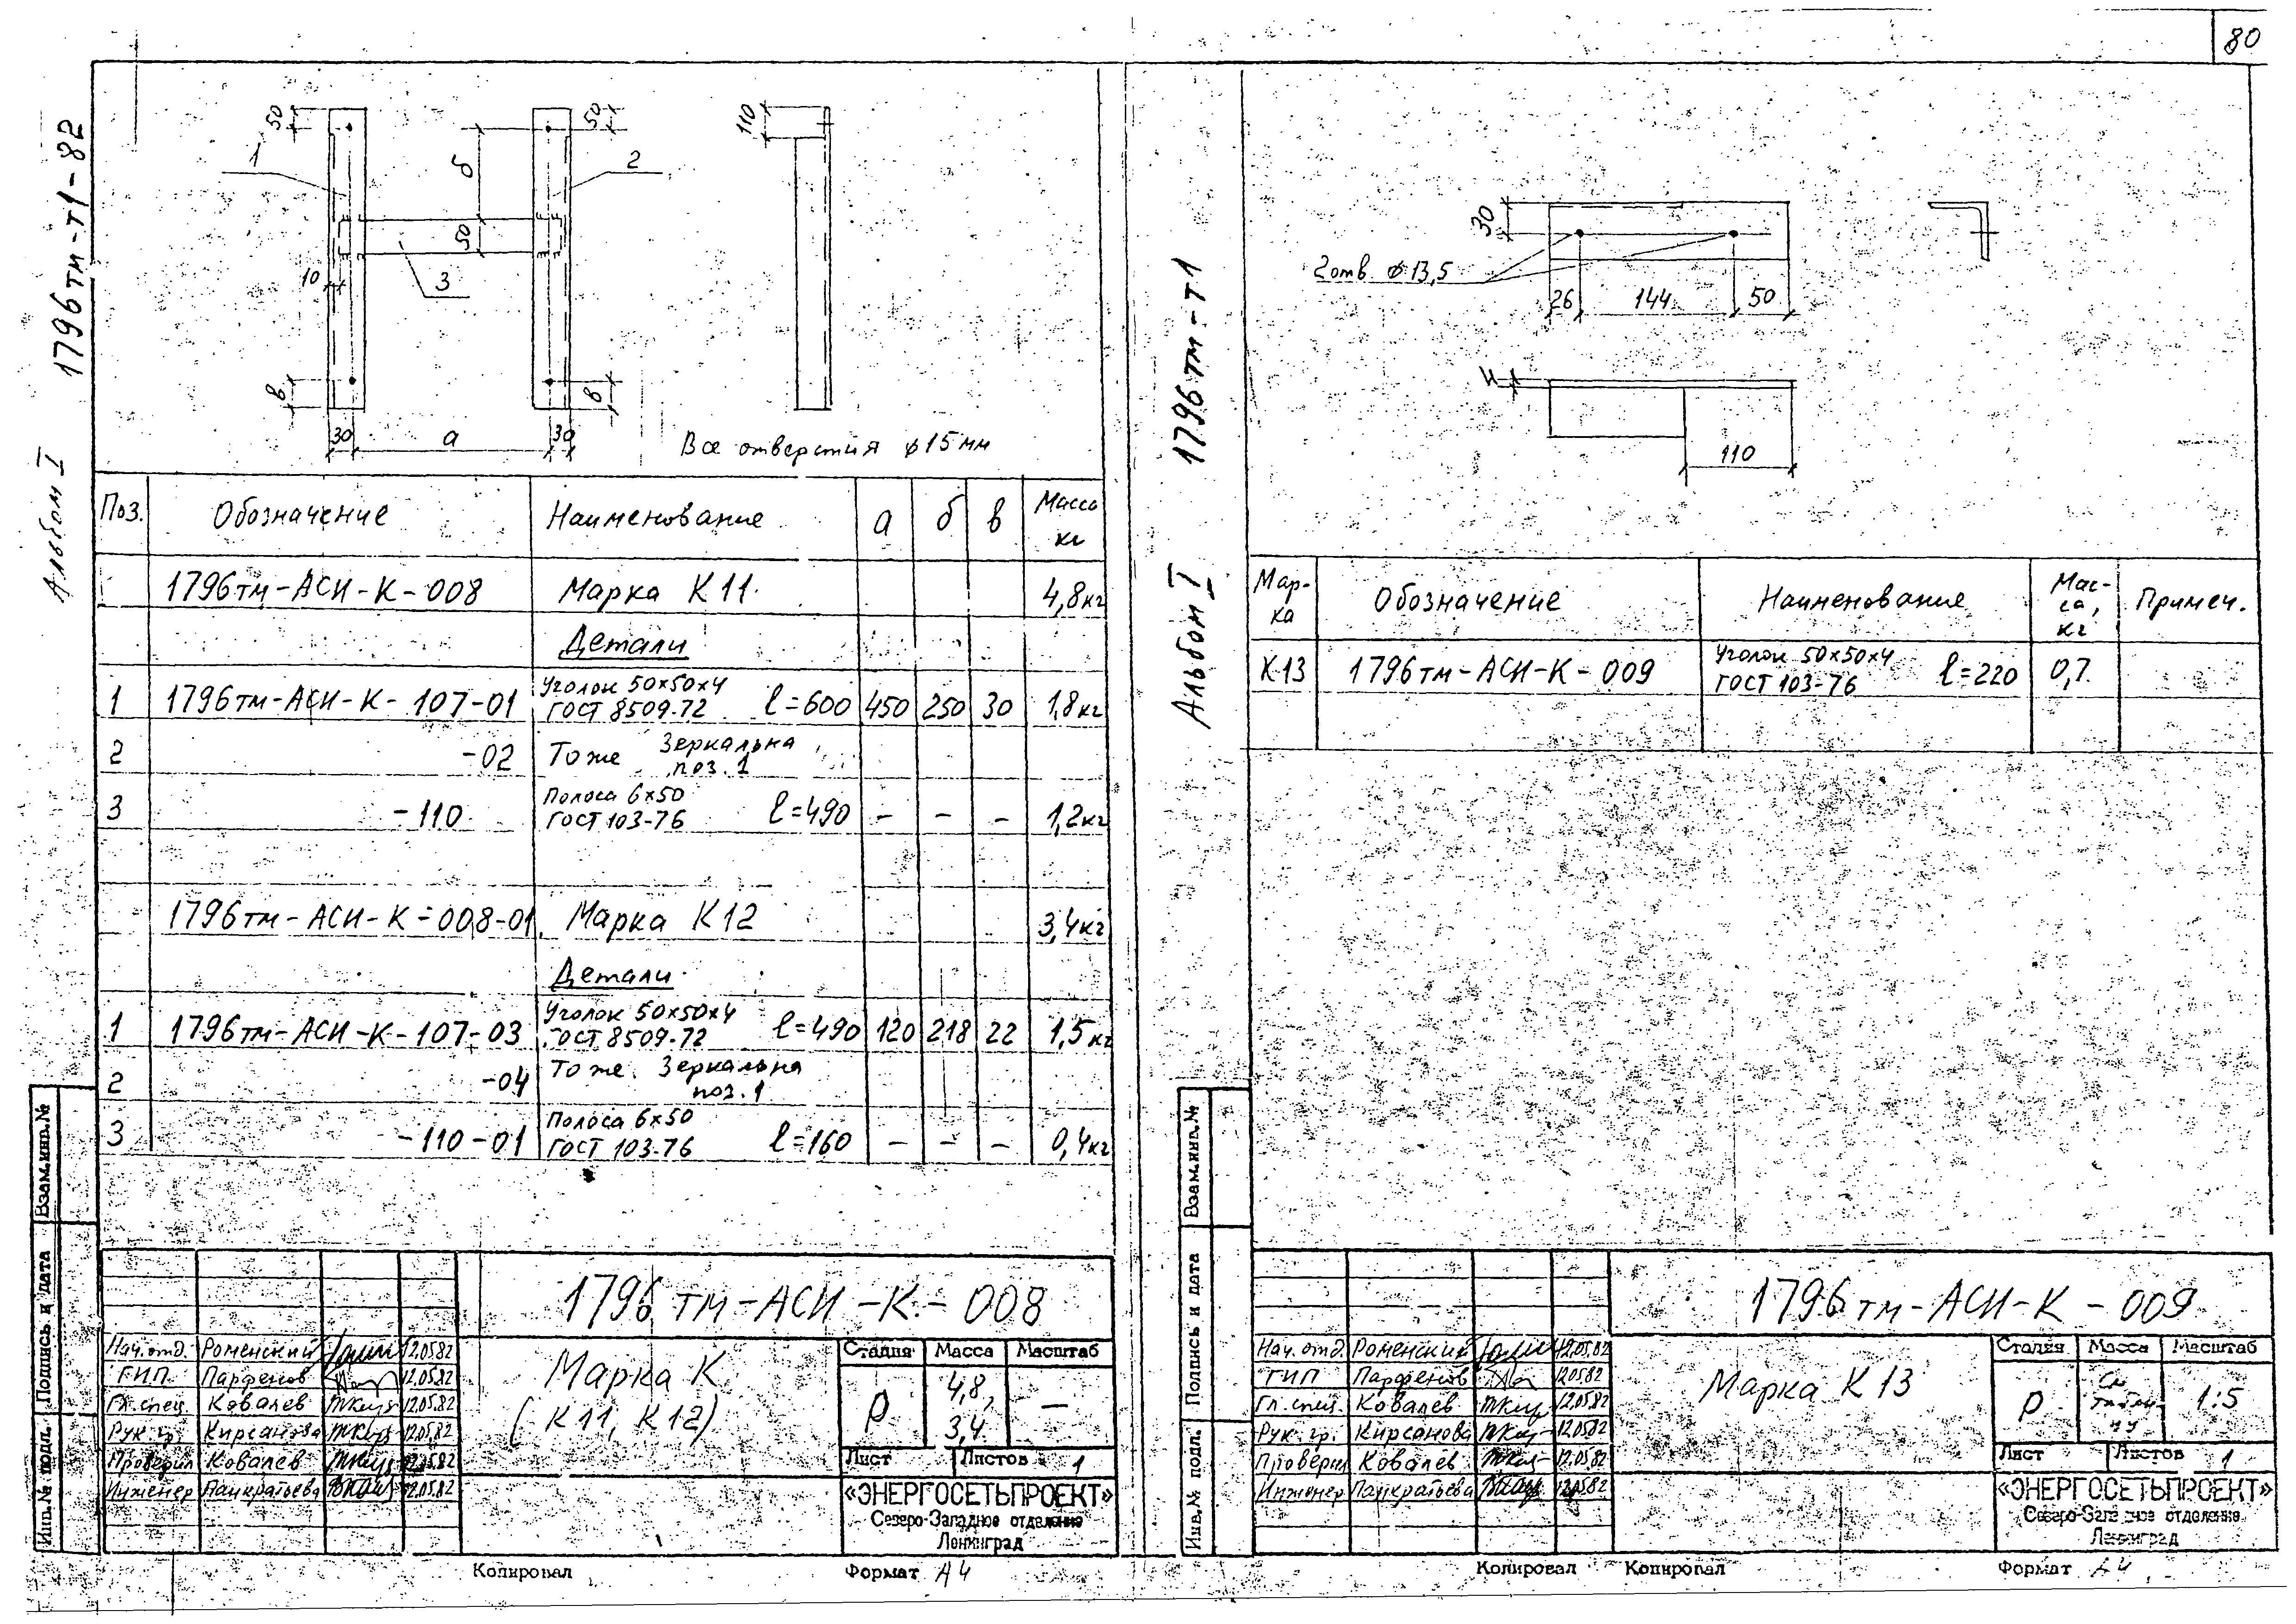 80
1796тм-т1-82
Альбом I
50
50
110
1
б
2
50
10
3
в
в
30
а
30
Все отверстия ⌀15мм
Поз. Обозначение Наименование а б в Масса кг
1796тм-АСИ-К-008 Марка К11 4,8кг
Детали
1 1796тм-АСИ-К-107-01 Уголок 50х50х4 ГОСТ 8509-72 ℓ=600 450 250 30 1,8кг
2 -02 То же Зеркальна поз. 1
3 -110 Полоса 6х50 ГОСТ 103-76 ℓ=490 - - - 1,2кг
1796тм-АСИ-К-008-01 Марка К12 3,4кг
Детали
1 1796тм-АСИ-К-107-03 Уголок 50х50х4 ГОСТ 8509-72 ℓ=490 120 218 22 1,5кг
2 -04 То же Зеркальна поз. 1
3 -110-01 Полоса 6х50 ГОСТ 103-76 ℓ=160 - - - 0,4кг
Взам.инв.№
Подпись и дата
Инв.№ подл.
1796тм-АСИ-К-008
Нач.отд. Роменский 12.05.82
ГИП Парфенов 12.05.82
Гл.спец. Ковалев 12.05.82
Рук.гр. Кирсанова 12.05.82
Проверил Ковалев 12.05.82
Инженер Панкратьева 12.05.82
Марка К
(К11, К12)
Стадия Масса Масштаб
Р 4,8, 3,4 —
Лист Листов 1
«ЭНЕРГОСЕТЬПРОЕКТ»
Северо-Западное отделение
Ленинград
Копировал Формат А4
1796тм-т1
Альбом I
30
2отв. ⌀13,5
26 144 50
4
110
Мар-ка Обозначение Наименование Мас-са, кг Примеч.
К13 1796тм-АСИ-К-009 Уголок 50х50х4 ГОСТ 103-76 ℓ=220 0,7
Взам.инв.№
Подпись и дата
Инв.№ подл.
1796тм-АСИ-К-009
Нач.отд. Роменский 12.05.82
ГИП Парфенов 12.05.82
Гл.спец. Ковалев 12.05.82
Рук.гр. Кирсанова 12.05.82
Проверил Ковалев 12.05.82
Инженер Панкратьева 12.05.82
Марка К13
Стадия Масса Масштаб
Р См. таблицу 1:5
Лист Листов 1
«ЭНЕРГОСЕТЬПРОЕКТ»
Северо-Западное отделение
Ленинград
Копировал Копировал Формат А4